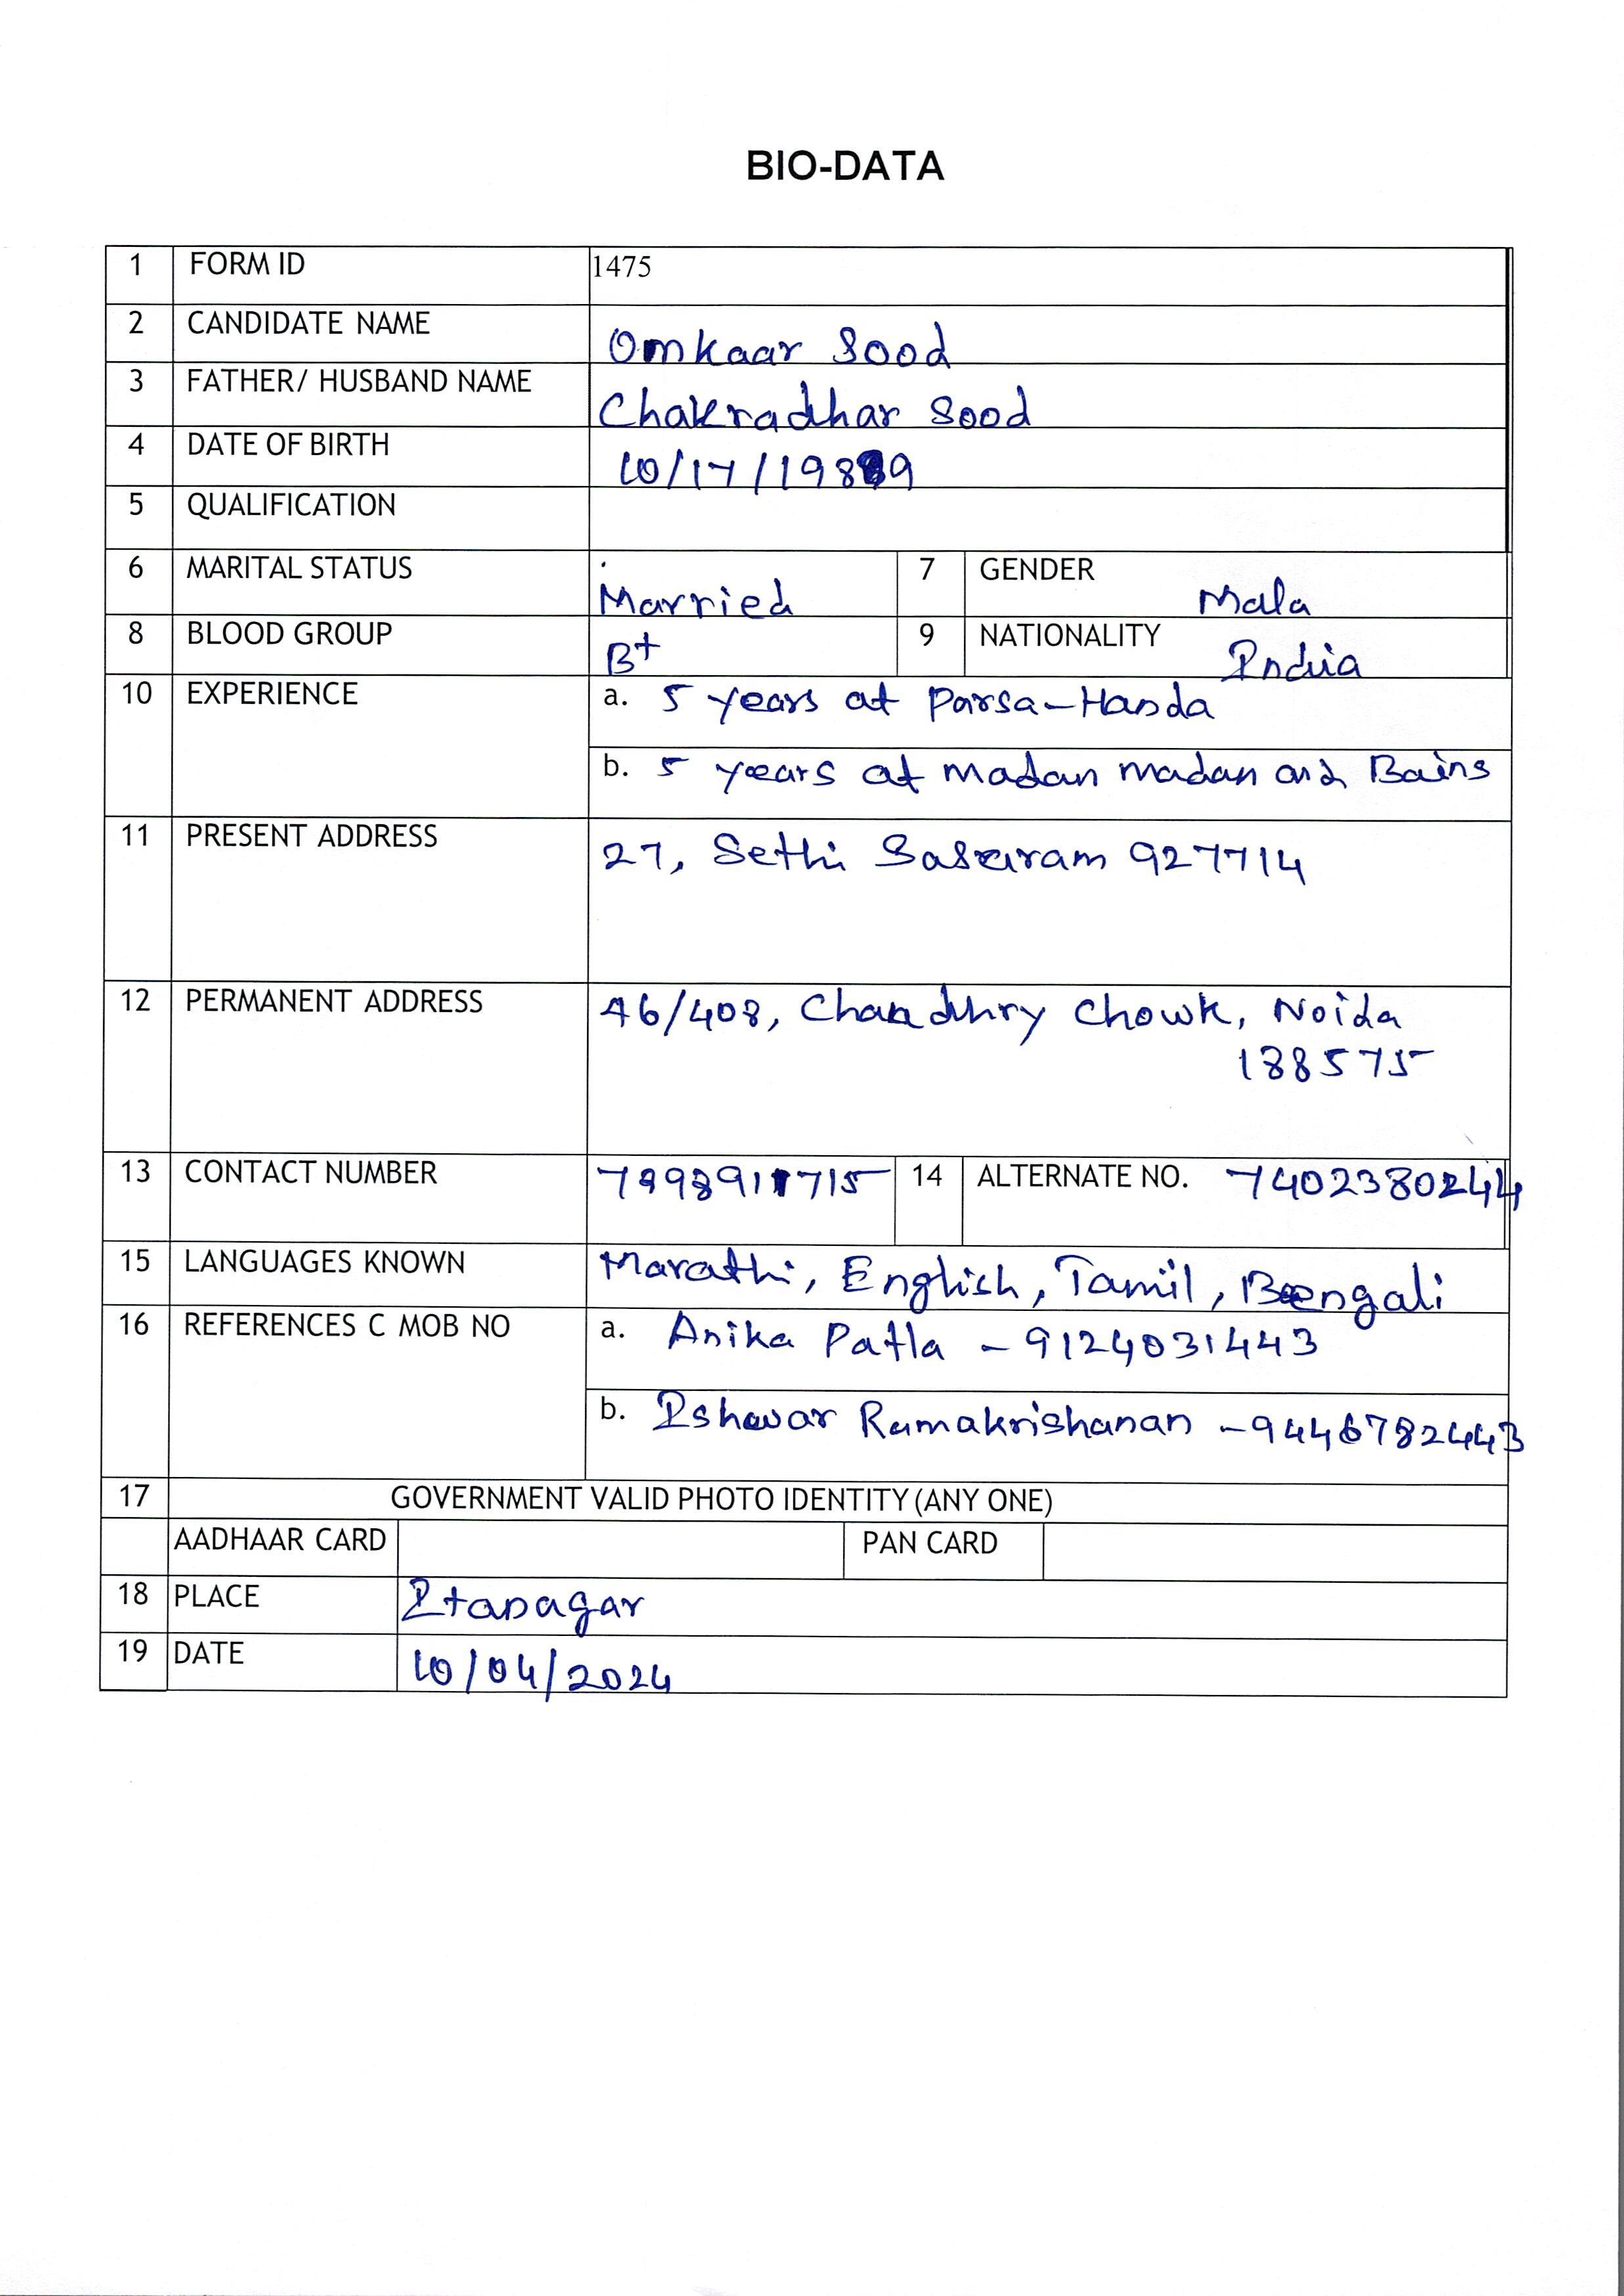 BIO-DATA
1 FORM ID 1475
2 CANDIDATE NAME Omkaar Sood
3 FATHER/ HUSBAND NAME Chakradhar Sood
4 DATE OF BIRTH 10/17/1989
5 QUALIFICATION
6 MARITAL STATUS Married 7 GENDER Mala
8 BLOOD GROUP B+ 9 NATIONALITY India
10 EXPERIENCE a. 5 years at Parsa-Handa
b. 5 years at madan madan and Bains
11 PRESENT ADDRESS 27, Sethi 927714
12 PERMANENT ADDRESS 46/408, Chaudhry Chowk, Noida
188575
13 CONTACT NUMBER 14 ALTERNATE NO. 7402380244
15 LANGUAGES KNOWN Marathi, English, Tamil, Bengali
16 REFERENCES C MOB NO a. Anika Patla - 9124031443
b. Ishwar Ramakrishanan - 9446782443
17 GOVERNMENT VALID PHOTO IDENTITY (ANY ONE)
AADHAAR CARD PAN CARD
18 PLACE Itanagar
19 DATE 10/04/2024